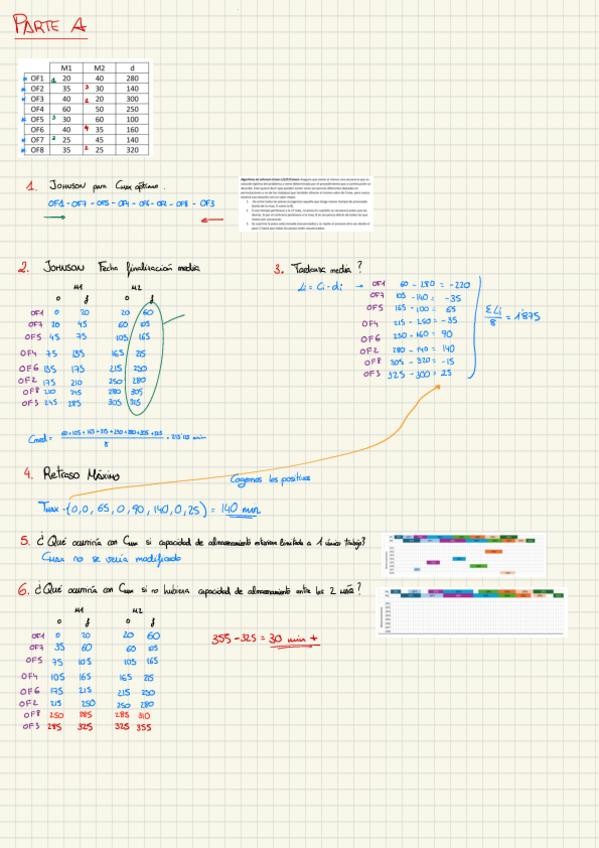 PARTE A
M1 M2 d
OF1 1 20 40 280
OF2 35 3 30 140
OF3 40 1 20 300
OF4 60 50 250
OF5 3 30 60 100
OF6 40 4 35 160
OF7 2 25 45 140
OF8 35 2 25 320
1. JOHNSON para Cmax óptimo.
OF1 - OF7 - OF5 - OF4 - OF6 - OF2 - OF8 - OF3
2. JOHNSON Fecha finalización media
M1 M2
0 f 0 f
OF1 0 20 20 60
OF7 20 45 60 105
OF5 45 75 105 165
OF4 75 135 165 215
OF6 135 175 215 250
OF2 175 210 250 280
OF8 210 245 280 305
OF3 245 285 305 325
Cmed = 60+105+165+215+250+280+305+325 / 8 = 213'13 min
3. Tardanza media?
Li = Ci - di → OF1 60 - 280 = -220
OF7 105 - 140 = -35
OF5 165 - 100 = 65
OF4 215 - 250 = -35
OF6 250 - 160 = 90
OF2 280 - 140 = 140
OF8 305 - 320 = -15
OF3 325 - 300 = 25
ΣLi / 8 = 1'875
4. Retraso Máximo
Cogemos los positivos
Tmax = (0, 0, 65, 0, 90, 140, 0, 25) = 140 min
5. ¿Qué ocurriría con Cmax si capacidad de almacenamiento intermedio limitada a 1 único trabajo?
Cmax no se vería modificado
6. ¿Qué ocurriría con Cmax si no hubiera capacidad de almacenamiento entre las 2 máq?
M1 M2
0 f 0 f
OF1 0 20 20 60
OF7 35 60 60 105
OF5 75 105 105 165
OF4 105 165 165 215
OF6 175 215 215 250
OF2 215 250 250 280
OF8 250 285 285 310
OF3 285 325 325 355
355 - 325 = 30 min +